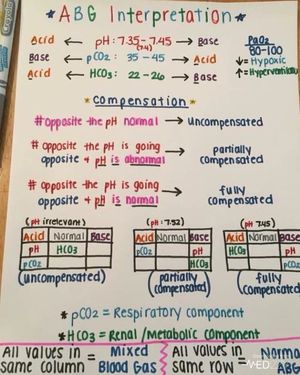 Crayola
*ABG Interpretation*
Acid ← pH: 7.35 - 7.45 → Base
(7.4)
Base ← pCO2: 35 - 45 → Acid
Acid ← HCO3: 22 - 26 → Base
PaO2
80-100
↓= Hypoxic
↑= Hyperventilation
* Compensation *
#opposite the pH normal → uncompensated
# opposite the pH is going opposite & pH is abnormal → partially compensated
# opposite the pH is going opposite & pH is normal → fully compensated
(pH irrelevant) (pH: 7.52) (pH 7.45)
Acid Normal Base
pH HCO3
pCO2
(uncompensated)
Acid Normal Base
pCO2 pH
HCO3
(partially compensated)
Acid Normal Base
HCO3 pH
pCO2
(fully compensated)
* pCO2 = Respiratory component
* HCO3 = Renal/Metabolic component
All values in same column = Mixed Blood Gas
All values in same row = Norma ABG